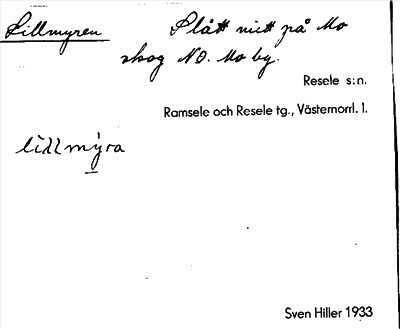 Lillmyren Slått mitt på Mo
skog NO. Mo by.
Resele s:n.
Ramsele och Resele tg., Västernorrl. l.
lillmyra
Sven Hiller 1933